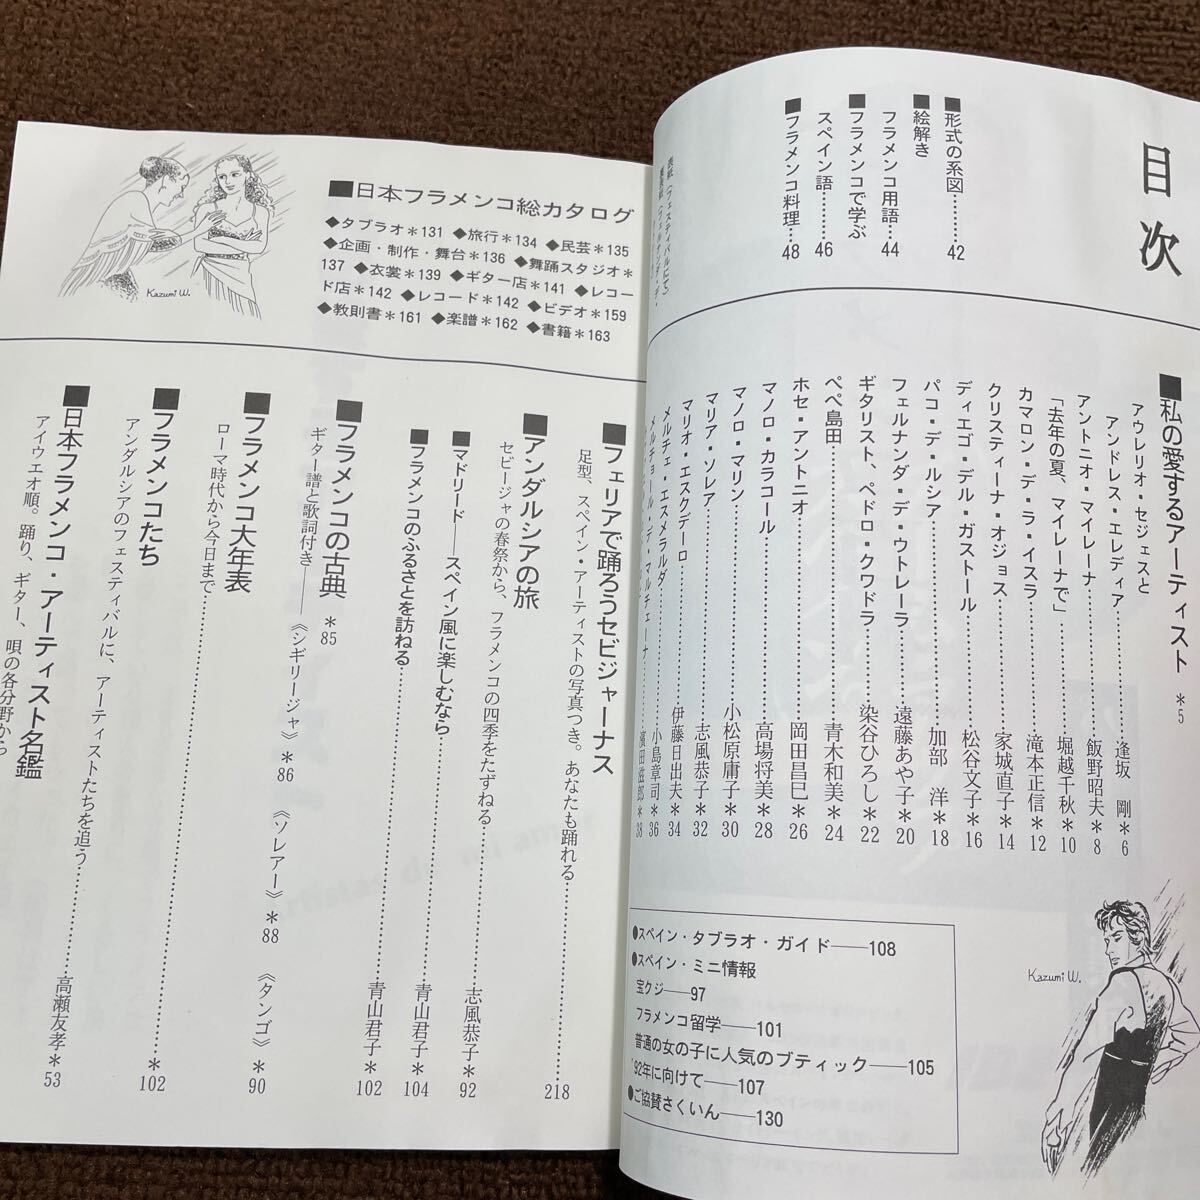 目次
■形式の系図………42
■絵解き
フラメンコ用語……44
■フラメンコで学ぶ
スペイン語………46
■フラメンコ料理……48
■私の愛するアーティスト ＊5
アウレリオ・セジェスと
アンドレス・エレディア………逢坂 剛＊6
アントニオ・マイレーナ………飯野昭夫＊8
「去年の夏、マイレーナで」………堀越千秋＊10
カマロン・デ・ラ・イスラ………滝本正信＊12
クリスティーナ・オジョス………家城直子＊14
ディエゴ・デル・ガストール………松谷文子＊16
パコ・デ・ルシア………加部 洋＊18
フェルナンダ・デ・ウトレーラ………遠藤あや子＊20
ギタリスト、ペドロ・クワドラ………染谷ひろし＊22
ペペ島田………青木和美＊24
ホセ・アントニオ………岡田昌巳＊26
マノロ・カラコール………高場将美＊28
マノロ・マリン………小松原庸子＊30
マリア・ソレア………志風恭子＊32
マリオ・エスクデーロ………伊藤日出夫＊34
メルチェ・エスメラルダ………小島章司＊36
メルチョール・デ・マルチェーナ………濱田滋郎＊38
●スペイン・タブラオ・ガイド──108
●スペイン・ミニ情報
宝クジ──97
フラメンコ留学──101
普通の女の子に人気のブティック──105
'92年に向けて──107
●ご協賛さくいん──130
Kazumi W.
■日本フラメンコ総カタログ
◆タブラオ＊131 ◆旅行＊134 ◆民芸＊135
◆企画・制作・舞台＊136 ◆舞踊スタジオ＊
137 ◆衣裳＊139 ◆ギター店＊141 ◆レコー
ド店＊142 ◆レコード＊142 ◆ビデオ＊159
◆教則書＊161 ◆楽譜＊162 ◆書籍＊163
Kazumi W.
■フェリアで踊ろうセビジャーナス
足型、スペイン・アーティストの写真つき。あなたも踊れる………218
■アンダルシアの旅
セビージャの春祭から、フラメンコの四季をたずねる………志風恭子＊92
■マドリード──スペイン風に楽しむなら………青山君子＊104
■フラメンコのふるさとを訪ねる………青山君子＊102
■フラメンコの古典 ＊85
ギター譜と歌詞付き──《シギリージャ》＊86 《ソレアー》＊88 《タンゴ》＊90
■フラメンコ大年表
ローマ時代から今日まで………＊102
■フラメンコたち
アンダルシアのフェスティバルに、アーティストたちを追う………高瀬友孝＊53
■日本フラメンコ・アーティスト名鑑
アイウエオ順。踊り、ギター、唄の各分野から